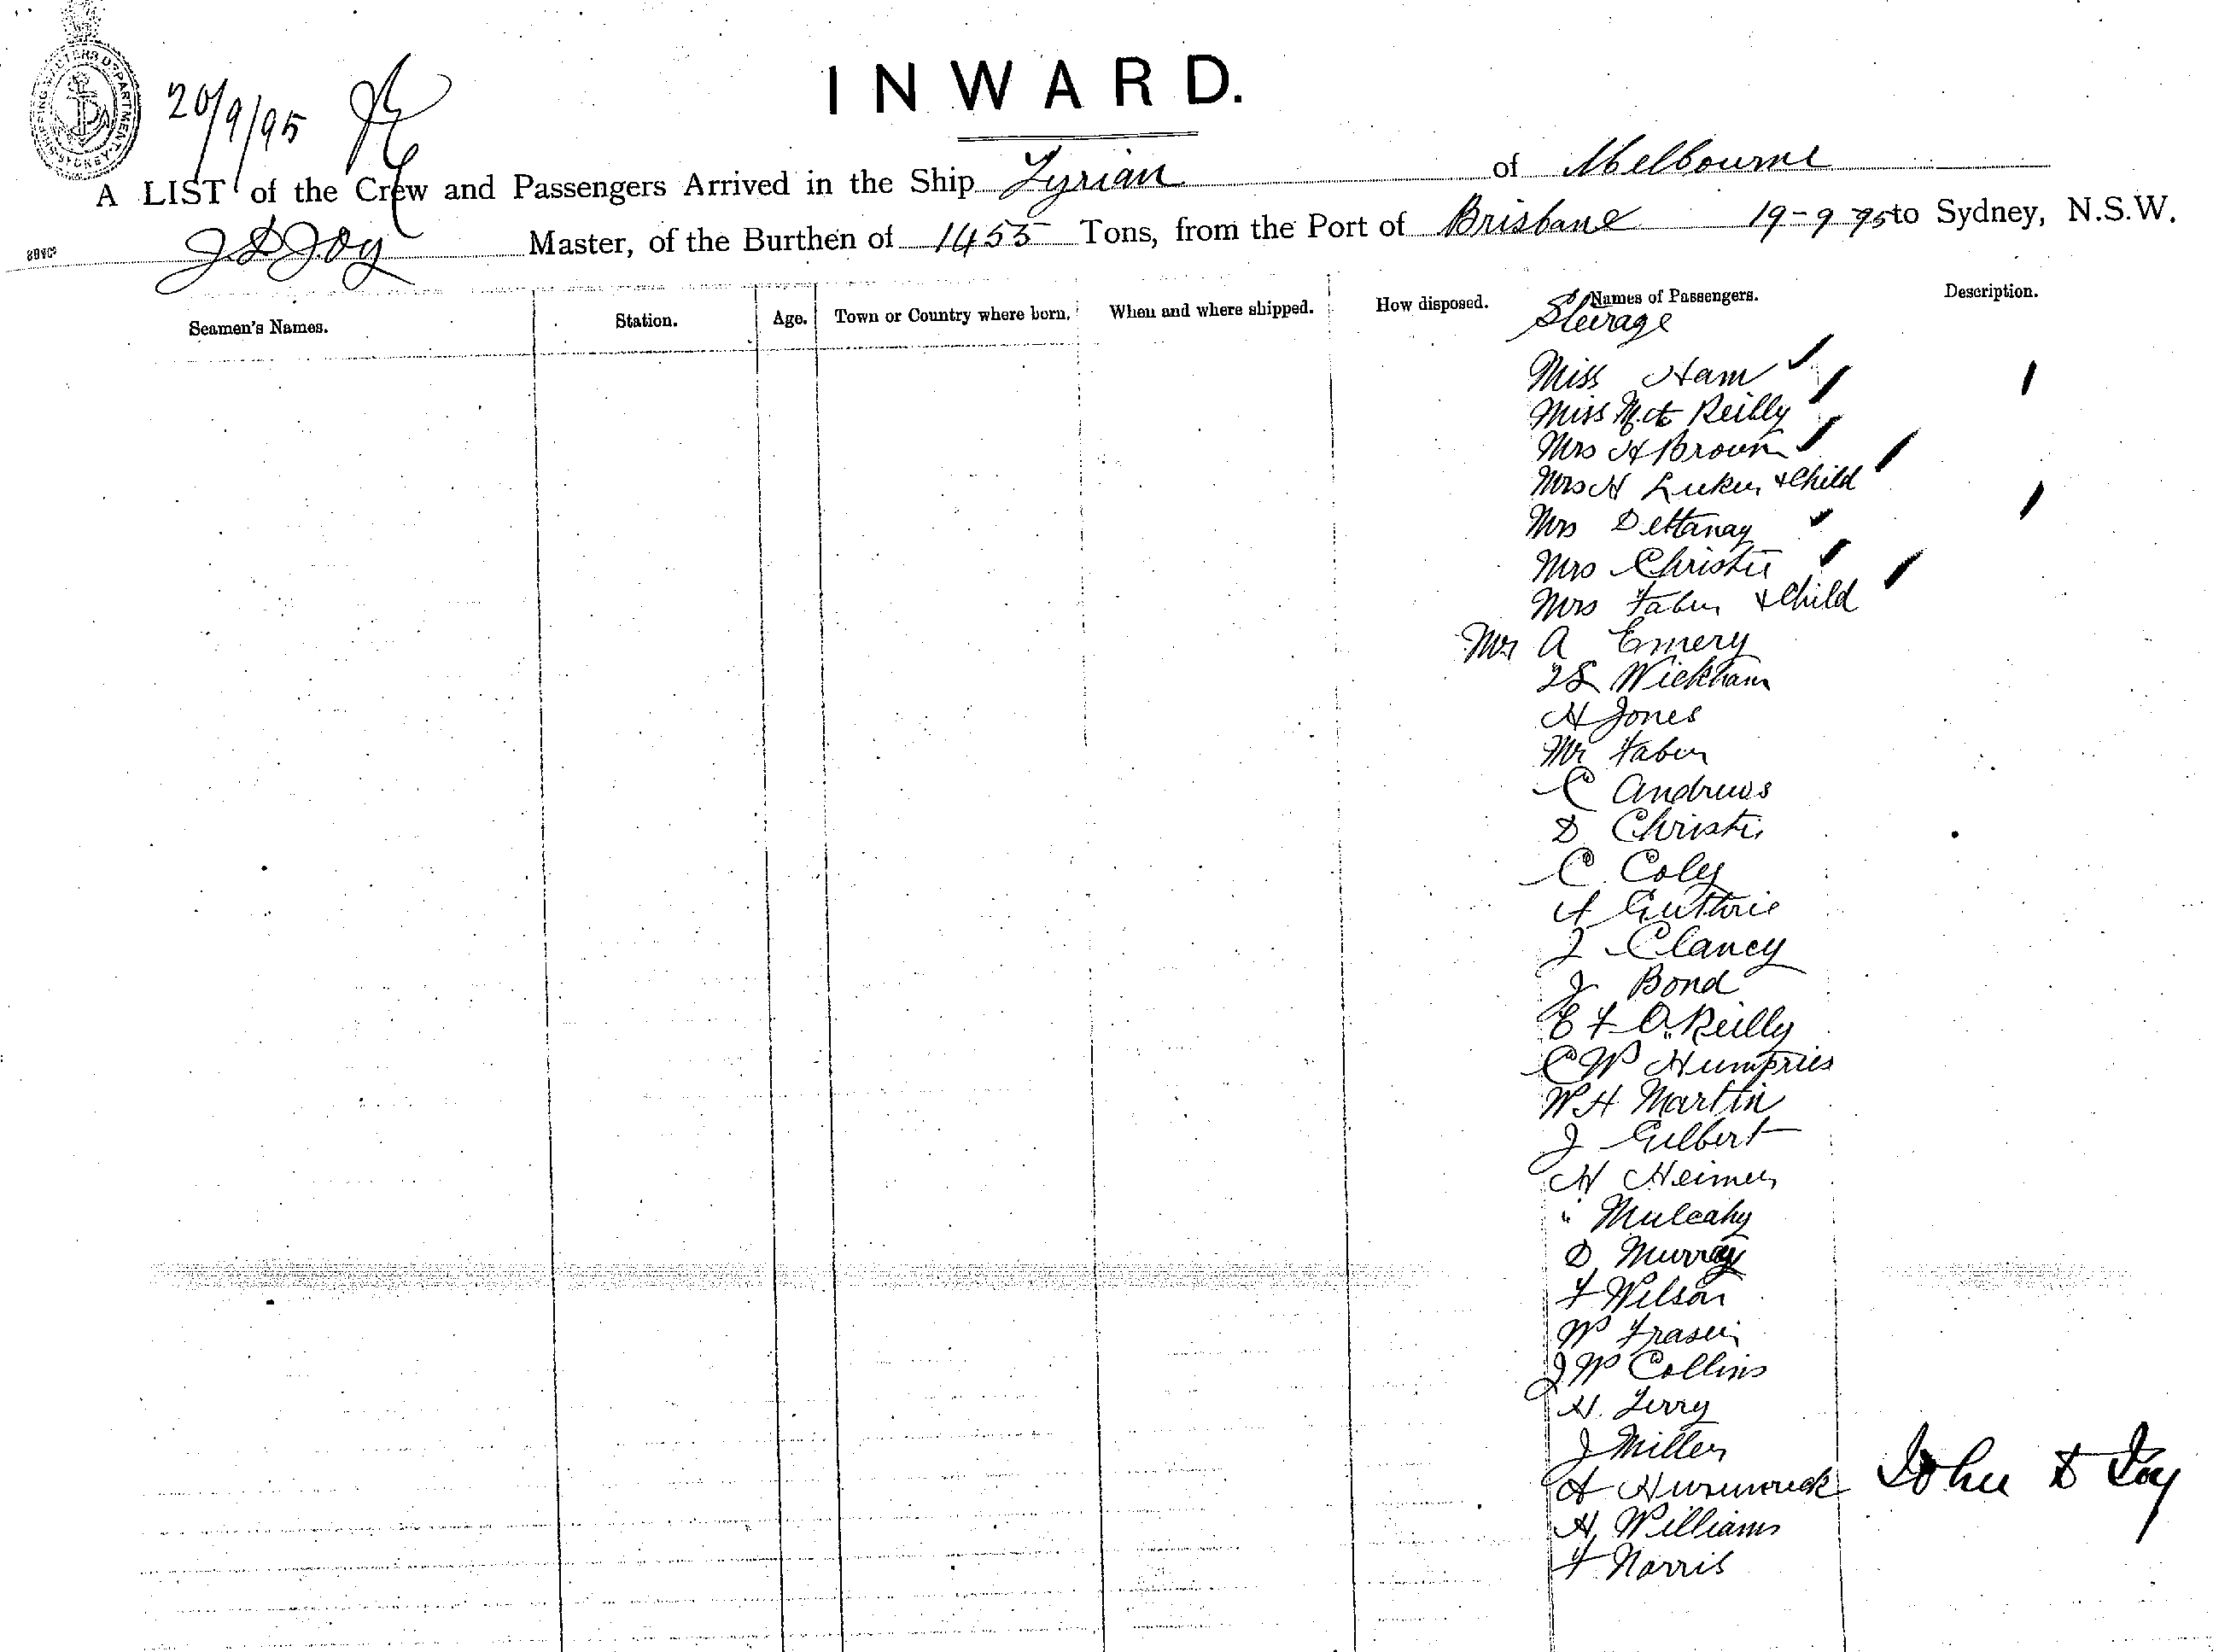 SHIPPING MASTERS DEPARTMENT SYDNEY
20/9/95
INWARD.
A LIST of the Crew and Passengers Arrived in the Ship Tyrian of Melbourne
J D Joy Master, of the Burthen of 1453 Tons, from the Port of Brisbane 19-9-95 to Sydney, N.S.W.
Seamen's Names. Station. Age. Town or Country where born. When and where shipped. How disposed. Names of Passengers. Description.
Steerage
Miss Ham
Miss Reilly
Mrs H Brown
Mrs H Luker & Child
Mrs Dettanay
Mrs Christie
Mrs Faber & Child
Mr A Emery
Wickham
H Jones
Mr Faber
C Andrews
D Christie
C Coley
A Guthrie
J Clancy
J Bond
E F O'Reilly
C W Humpries
W H Martin
J Gilbert
H Heimer
" Mulcahy
D Murray
F Wilson
W Fraser
J W Collins
H. Terry
J Miller
A
H Williams
F Norris
John D Joy